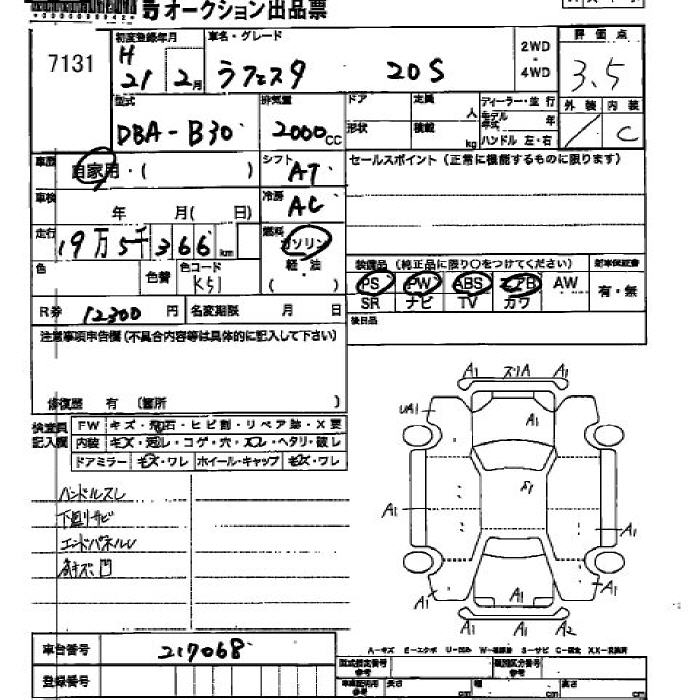 オークション出品票
7131
初度登録年月
H
21 2月
車名・グレード
ラフェスタ 20S
2WD
・
4WD
評価点
3.5
外装 内装
/ C
型式
DBA-B30
排気量
2000cc
ドア 定員 人
形状 積載 kg
ディーラー・並行
モデル年式 年
ハンドル 左・右
車歴
自家用・( )
シフト
AT
セールスポイント(正常に機能するものに限ります)
車検
年 月( 日)
冷房
AC
走行
19万5千366km
燃料
ガソリン
軽・油
( )
色
色替
色コード
K51
装備品 (純正品に限り○をつけてください)
PS PW ABS エアB AW
SR ナビ TV カワ
新車保証書
有・無
R券 12300円
名変期限 月 日
後日品
注意事項申告欄(不具合内容等は具体的に記入して下さい)
修復歴 有 (箇所 )
検査員
記入欄
FW キズ・飛石・ヒビ割・リペア跡・X要
内装 キズ・汚レ・コゲ・穴・スレ・ヘタリ・破レ
ドアミラー キズ・ワレ ホイール・キャップ キズ・ワレ
ハンドルスレ
下回リサビ
エンドパネルU
A1 スリA A1
UA1
A1
A1
A1
A1
A1
A1 A1 A2
車台番号 217068
登録番号
A-キズ E-エクボ U-凹み W-補修跡 S-サビ C-腐食 XX-交換済
型式指定番号
参考
類別区分番号
参考
長さ cm 幅 cm 高さ cm